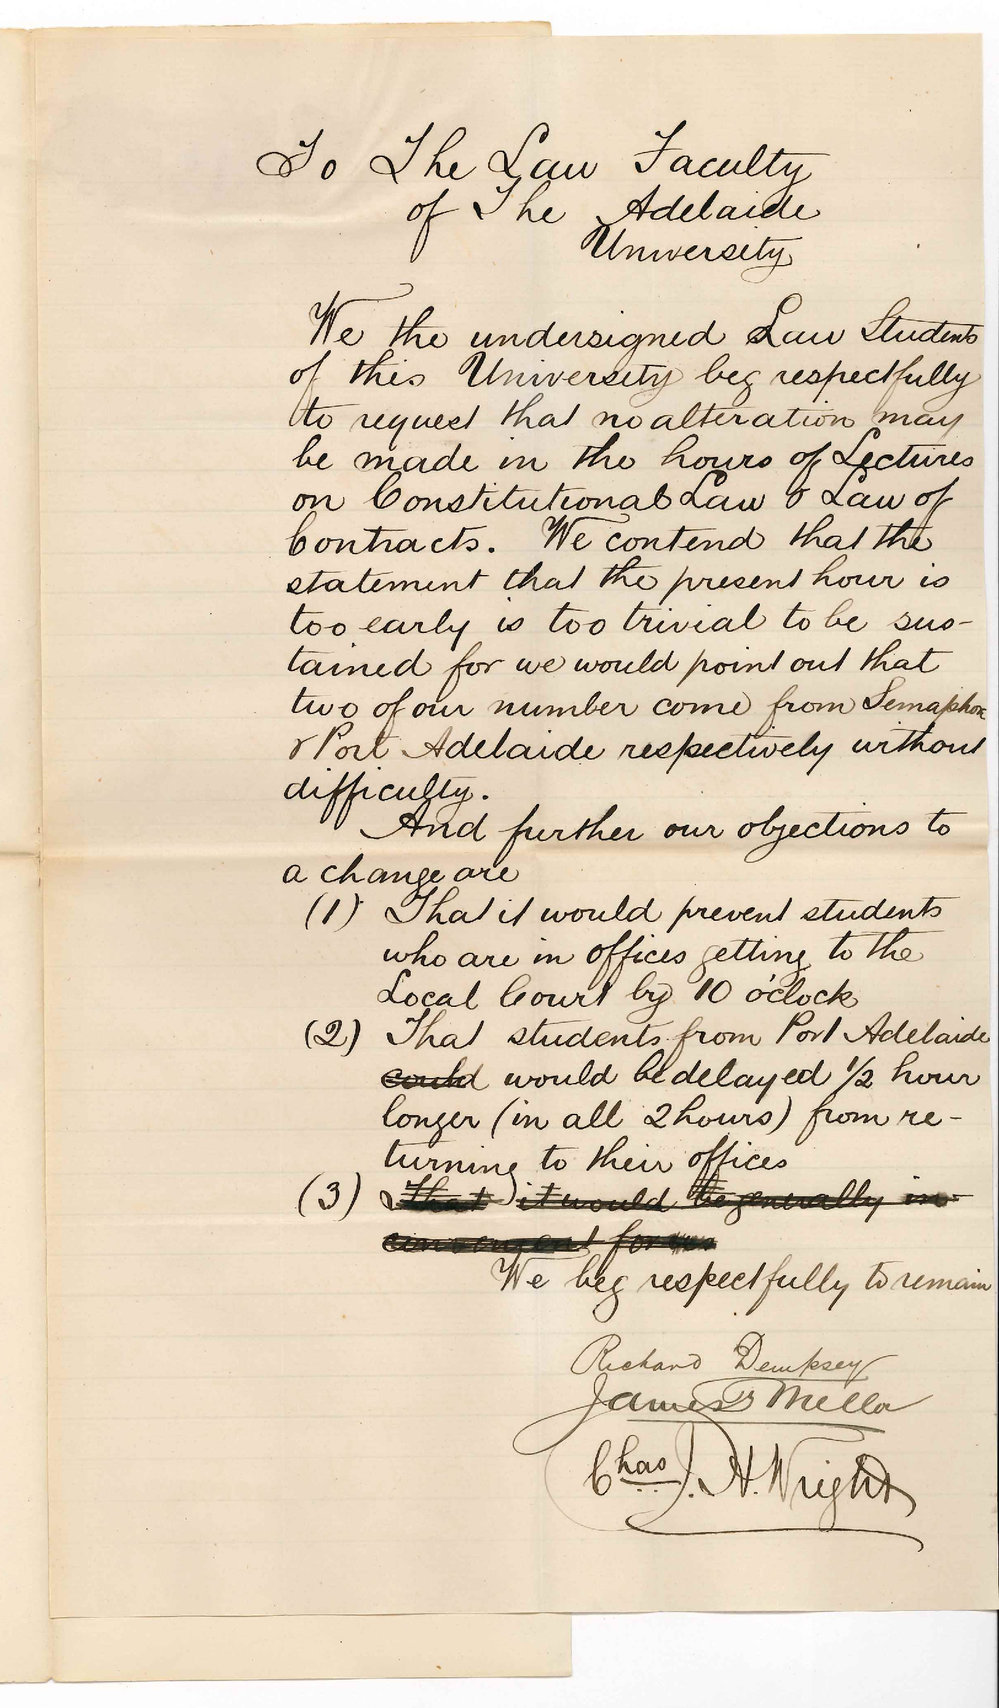 To The Law Faculty
of The Adelaide
University
We the undersigned Law Students
of this University beg respectfully
to request that no alteration may
be made in the hours of Lectures
on Constitutional Law & Law of
Contracts. We contend that the
statement that the present hour is
too early is too trivial to be sus-
tained for we would point out that
two of our number come from Semaphore
& Port Adelaide respectively without
difficulty.
And further our objections to
a change are
(1) That it would prevent students
who are in offices getting to the
Local Court by 10 o'clock
(2) That students from Port Adelaide
could would be delayed 1/2 hour
longer (in all 2 hours) from re-
turning to their offices
(3) That it would be generally in-
convenient for us
We beg respectfully to remain
Richard Dempsey
James Mellor
Chas J. H. Wright